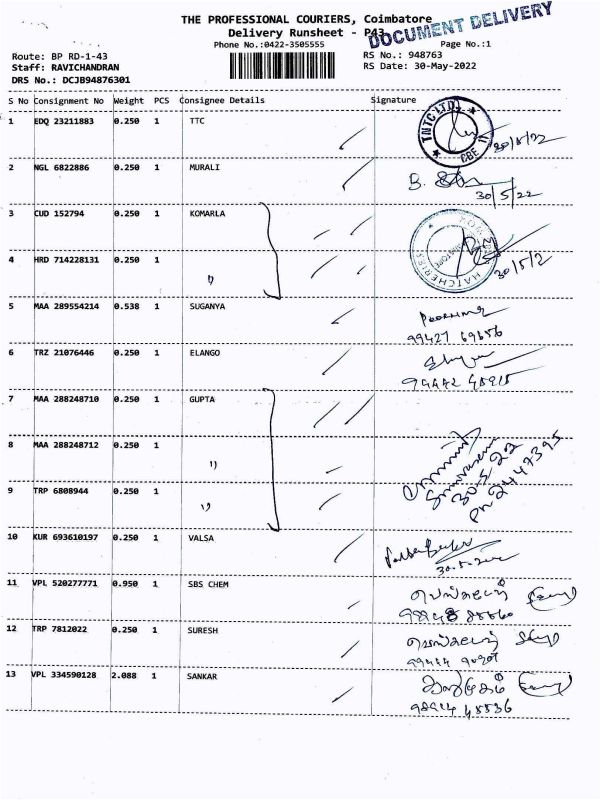 THE PROFESSIONAL COURIERS, Coimbatore
Delivery Runsheet - P43
DOCUMENT DELIVERY
Phone No.:0422-3505555 Page No.:1
Route: BP RD-1-43 RS No.: 948763
Staff: RAVICHANDRAN RS Date: 30-May-2022
DRS No.: DCJB94876301
S No Consignment No Weight PCS Consignee Details Signature
1 EDQ 23211883 0.250 1 TTC TNTC LTD II CBE 30/5/22
2 NGL 6822886 0.250 1 MURALI B. 30/5/22
3 CUD 152794 0.250 1 KOMARLA HATCHERIES
4 HRD 714228131 0.250 1 " 30/5/2
5 MAA 289554214 0.538 1 SUGANYA
99427 69656
6 TRZ 21076446 0.250 1 ELANGO
7 MAA 288248710 0.250 1 GUPTA
8 MAA 288248712 0.250 1 "
30-5-22
9 TRP 6808944 0.250 1 " Ph 2447395
10 KUR 693610197 0.250 1 VALSA
11 VPL 520277771 0.950 1 SBS CHEM
12 TRP 7812022 0.250 1 SURESH
13 VPL 334590128 2.088 1 SANKAR